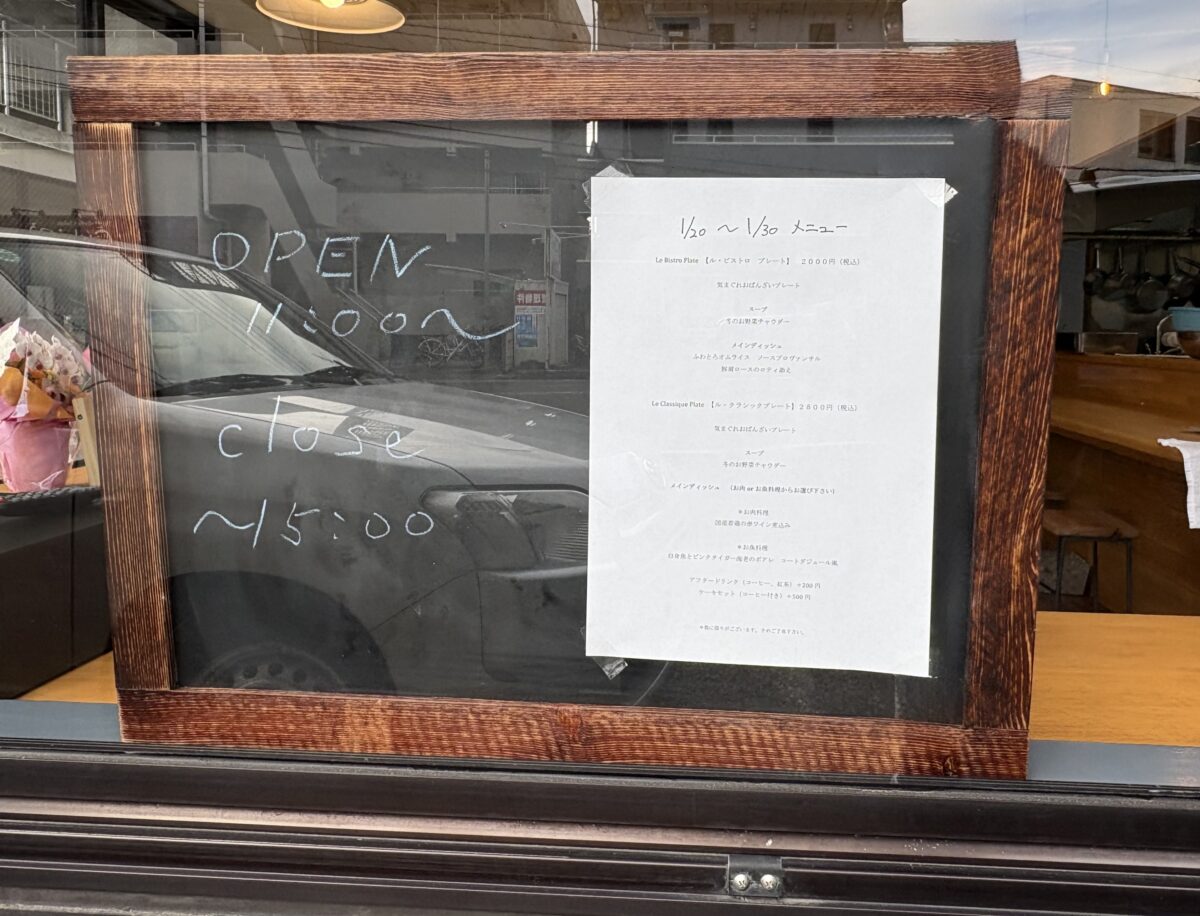 OPEN
11:00〜
close
〜15:00
1/20 〜 1/30 メニュー
Le Bistro Plate 【ル・ビストロ　プレート】　２０００円（税込）
気まぐれおばんざいプレート
スープ
冬のお野菜チャウダー
メインディッシュ
ふわとろオムライス　ソースプロヴァンサル
豚肩ロースのロティ添え
Le Classique Plate 【ル・クラシックプレート】２８００円（税込）
気まぐれおばんざいプレート
スープ
冬のお野菜チャウダー
メインディッシュ　（お肉 or お魚料理からお選び下さい）
＊お肉料理
国産若鶏の赤ワイン煮込み
＊お魚料理
白身魚とピンクタイガー海老のポアレ　コートダジュール風
アフタードリンク（コーヒー、紅茶）＋200 円
ケーキセット（コーヒー付き）＋500 円
＊数に限りがございます。予めご了承下さい。